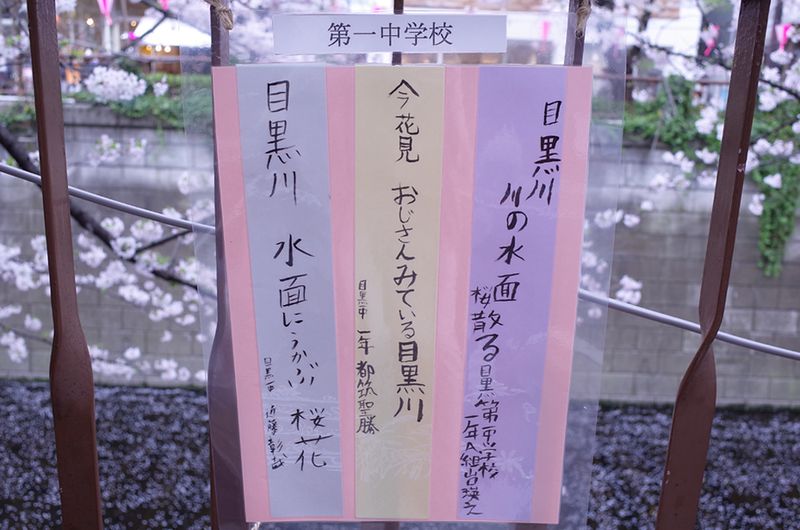 第一中学校
目黒川
川の水面
桜散る
目黒第一中学校
一年A組
今花見 おじさんみている目黒川
目黒一中 一年 都筑聖勝
目黒川 水面にうかぶ 桜花
目黒一中 近藤彰哉